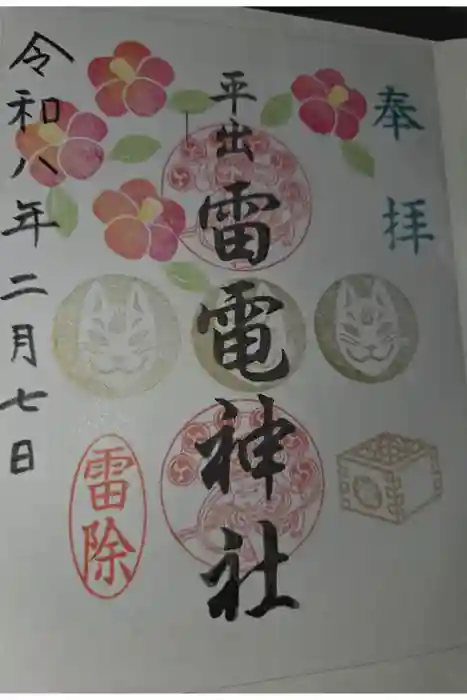 奉拝
平出雷電神社
雷除
令和八年二月七日